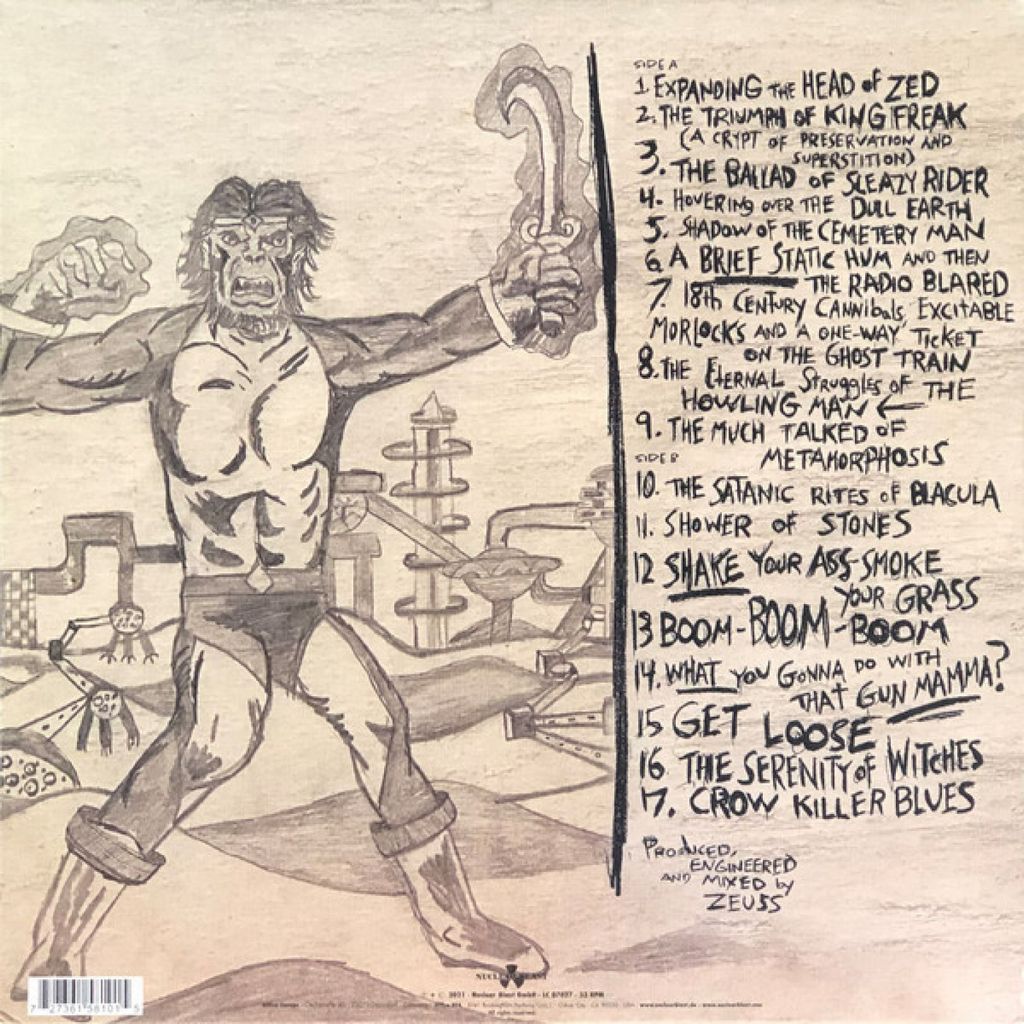 SIDE A
1. EXPANDING THE HEAD OF ZED
2. THE TRIUMPH OF KING FREAK
(A CRYPT OF PRESERVATION AND
SUPERSTITION)
3. THE BALLAD OF SLEAZY RIDER
4. HOVERING OVER THE DULL EARTH
5. SHADOW OF THE CEMETERY MAN
6 A BRIEF STATIC HUM AND THEN
THE RADIO BLARED
7. 18th CENTURY CANNIBALS, EXCITABLE
MORLOCKS AND A ONE-WAY TICKET
ON THE GHOST TRAIN
8. THE ETERNAL STRUGGLES OF THE
HOWLING MAN ←
9. THE MUCH TALKED OF
METAMORPHOSIS
SIDE B
10. THE SATANIC RITES OF BLACULA
11. SHOWER OF STONES
12 SHAKE YOUR ASS-SMOKE
YOUR GRASS
13 BOOM-BOOM-BOOM
14. WHAT YOU GONNA DO WITH
THAT GUN MAMMA?
15 GET LOOSE
16 THE SERENITY OF WITCHES
17. CROW KILLER BLUES
PRODUCED,
ENGINEERED
AND MIXED by
ZEUSS
NUCLEAR BLAST
℗ + © 2021 - Nuclear Blast GmbH - LC 07027 - 33 RPM
www.nuclearblast.de - www.nuclearblast.com
All rights reserved.
7 27361 56101 5